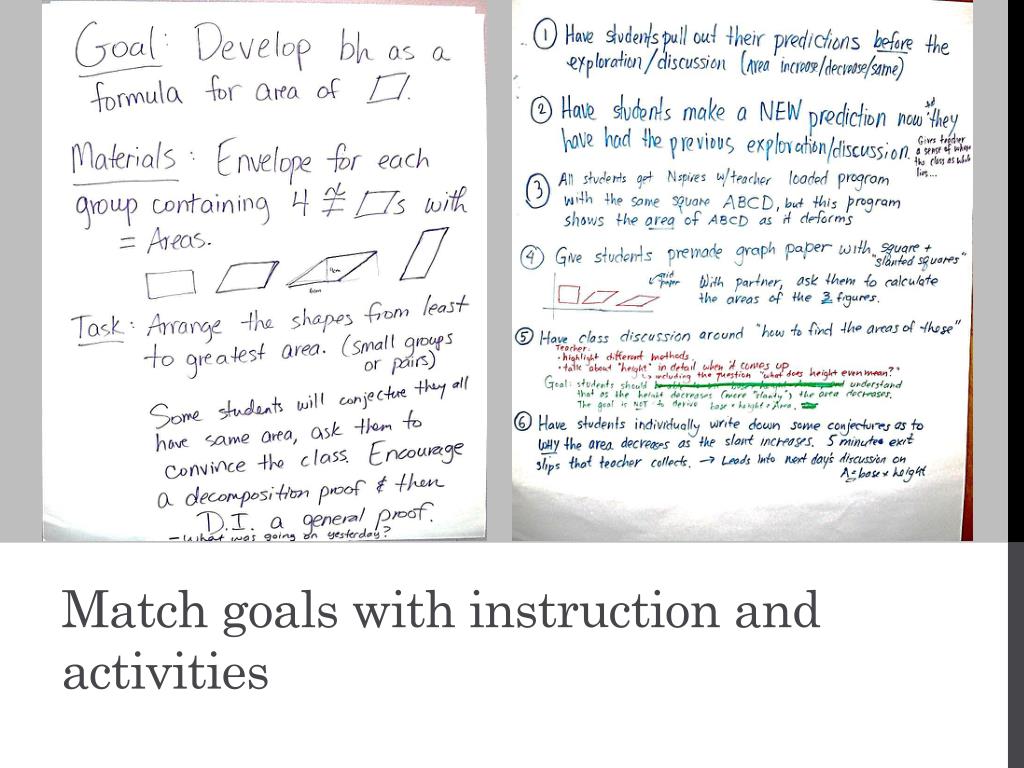 Goal: Develop bh as a
formula for area of ▱.
Materials: Envelope for each
group containing 4 ≇ ▱s with
= Areas.
Task: Arrange the shapes from least
to greatest area. (small groups
or pairs)
Some students will conjecture they all
have same area, ask them to
convince the class. Encourage
a decomposition proof & then
D.I. a general proof.
- What was going on yesterday?
① Have students pull out their predictions before the
exploration/discussion (area increase/decrease/same)
② Have students make a NEW prediction now that they
have had the previous exploration/discussion.
Gives teacher
a sense of where
the class as whole
lies...
③ All students get Nspires w/teacher loaded program
with the same square ABCD, but this program
shows the area of ABCD as it deforms
④ Give students premade graph paper with square +
"slanted squares"
grid
paper
With partner, ask them to calculate
the areas of the 3 figures.
⑤ Have class discussion around "how to find the areas of those"
Teacher:
• highlight different methods.
• talk about "height" in detail when it comes up
↳ including the question "what does height even mean?"
Goal: students should understand
that as the height decreases (more "slanty"), the area decreases.
The goal is NOT to derive base × height = Area.
⑥ Have students individually write down some conjectures as to
WHY the area decreases as the slant increases. 5 minute exit
slips that teacher collects. → Leads into next day's discussion on
A = base × height
Match goals with instruction and
activities